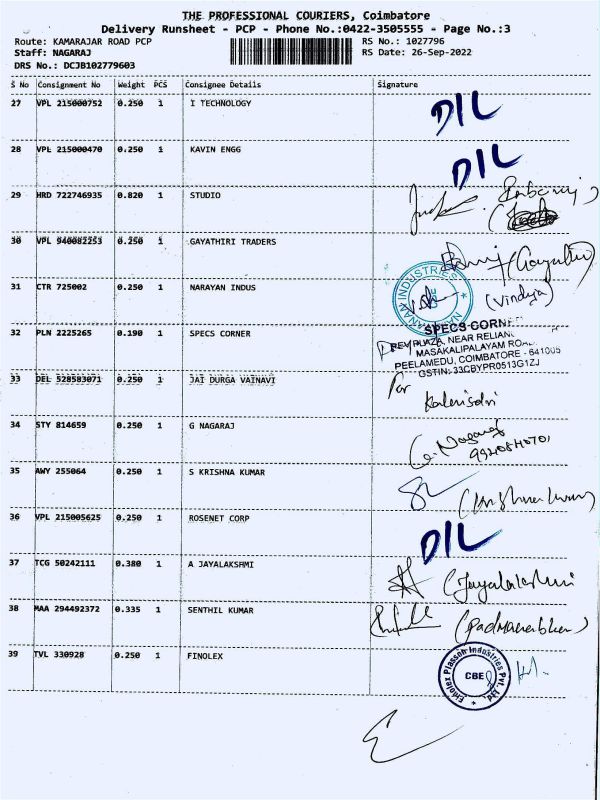 THE PROFESSIONAL COURIERS, Coimbatore
Delivery Runsheet - PCP - Phone No.:0422-3505555 - Page No.:3
Route: KAMARAJAR ROAD PCP RS No.: 1027796
Staff: NAGARAJ RS Date: 26-Sep-2022
DRS No.: DCJB102779603
S No Consignment No Weight PCS Consignee Details Signature
27 VPL 215000752 0.250 1 I TECHNOLOGY D/L
28 VPL 215000470 0.250 1 KAVIN ENGG D/L
29 HRD 722746935 0.820 1 STUDIO
30 VPL 940082253 0.250 1 GAYATHIRI TRADERS
31 CTR 725002 0.250 1 NARAYAN INDUS (Vindya)
NARAYANAN INDUSTRIES
32 PLN 2225265 0.190 1 SPECS CORNER
SPECS CORNE
PREY PLAZA, NEAR RELIAN
MASAKALIPALAYAM ROA
PEELAMEDU, COIMBATORE - 641005
GSTIN: 33CBYPR0513G1ZJ
33 DEL 528583071 0.250 1 JAI DURGA VAINAVI For
34 STY 814659 0.250 1 G NAGARAJ G. Nagaraj
35 AWY 255064 0.250 1 S KRISHNA KUMAR
36 VPL 215005625 0.250 1 ROSENET CORP D/L
37 TCG 50242111 0.380 1 A JAYALAKSHMI (Jayalakshmi
38 MAA 294492372 0.335 1 SENTHIL KUMAR (Padmanabhan)
39 TVL 330928 0.250 1 FINOLEX
Finolex Plasson Industries Pvt. Ltd.
CBE